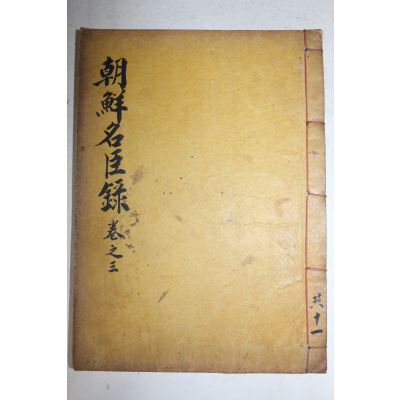 朝鮮名臣錄
卷之三
共十一